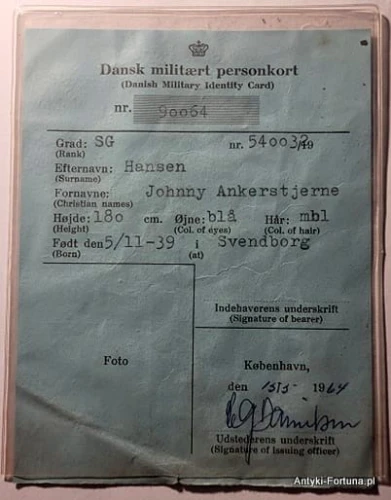 Dansk militært personkort
(Danish Military Identity Card)
nr. 90064
Grad: SG nr. 540032/49
(Rank)
Efternavn: Hansen
(Surname)
Fornavne: Johnny Ankerstjerne
(Christian names)
Højde: 180 cm. Øjne: blå Hår: mbl
(Height) (Col. of eyes) (Col. of hair)
Født den 5/11-39 i Svendborg
(Born) (at)
Indehaverens underskrift
(Signature of bearer)
Foto
København,
den 13/5- 1964
Udstederens underskrift
(Signature of issuing officer)
Antyki-Fortuna.pl